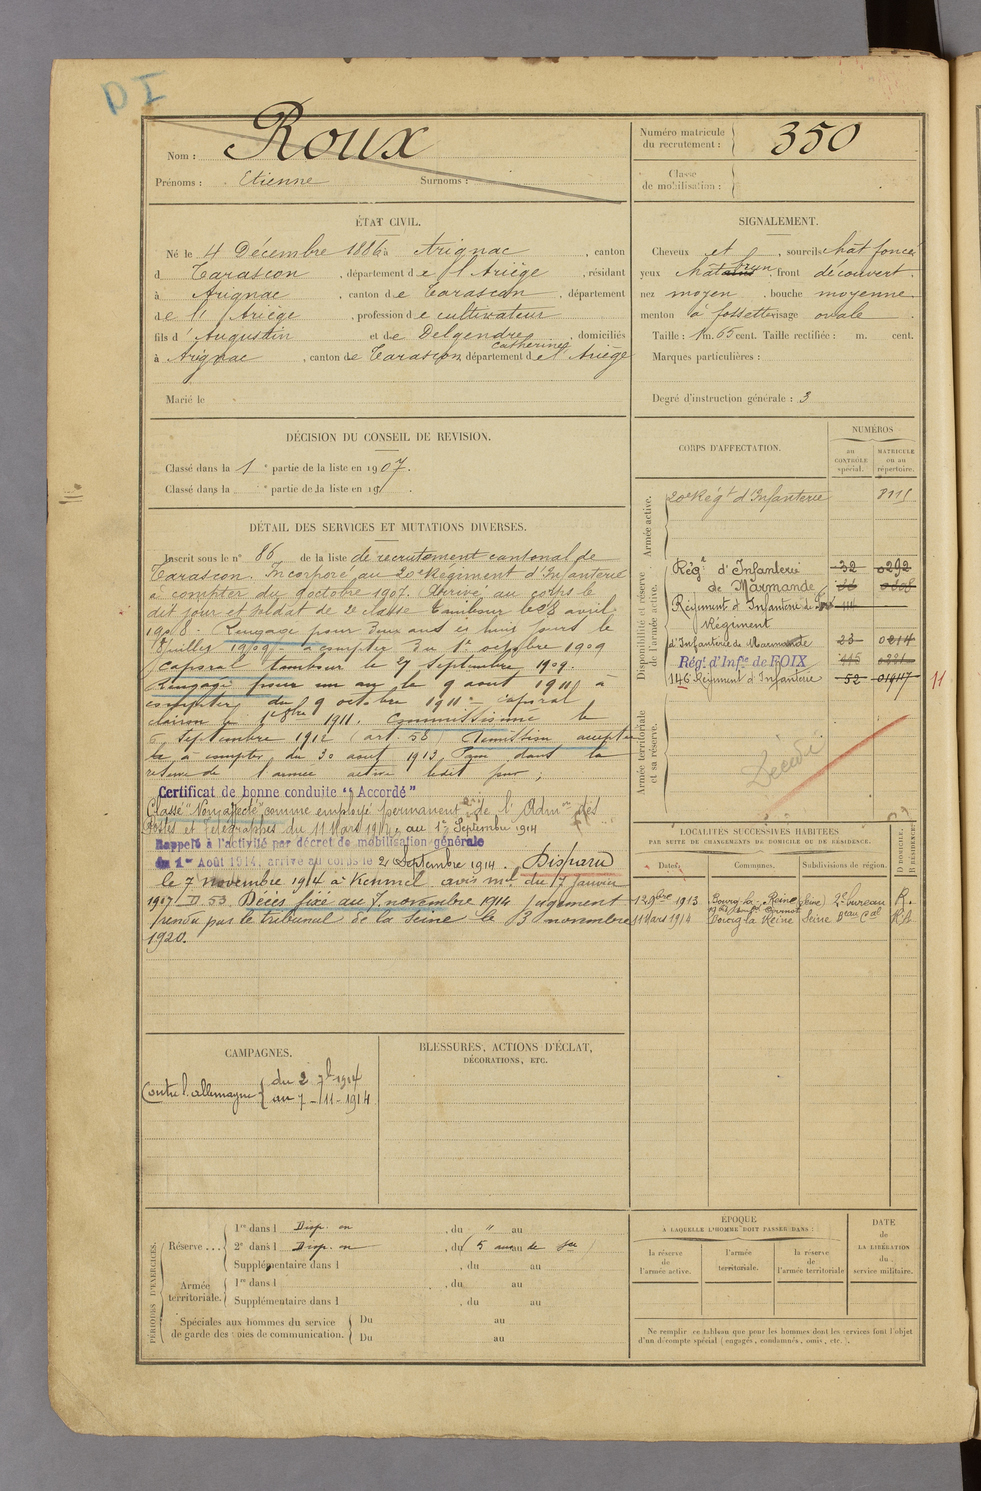 DI
Nom : Roux
Prénoms : Etienne Surnoms :
Numéro matricule du recrutement : 350
Classe de mobilisation :
ÉTAT CIVIL.
Né le 4 Décembre 1886 à Arignac, canton
d Tarascon, département de l'Ariège, résidant
à Arignac, canton de Tarascon, département
de l'Ariège, profession de cultivateur
fils d'Augustin et de Delgendre Catherine, domiciliés
à Arignac, canton de Tarascon département de l'Ariège
Marié le
SIGNALEMENT.
Cheveux et, sourcils chat foncé
yeux chat, front découvert.
nez moyen, bouche moyenne.
menton à fossette visage ovale.
Taille : 1 m. 65 cent. Taille rectifiée : m. cent.
Marques particulières :
Degré d'instruction générale : 3
DÉCISION DU CONSEIL DE REVISION.
Classé dans la 1e partie de la liste en 1907.
Classé dans la e partie de la liste en 19 .
DÉTAIL DES SERVICES ET MUTATIONS DIVERSES.
Inscrit sous le n° 86 de la liste de recrutement cantonal de
Tarascon. Incorporé au 20e Régiment d'Infanterie
à compter du 7 octobre 1907. Arrivé au corps le
dit jour et soldat de 2e classe. Tambour le 28 avril
1908. Rengagé pour deux ans et huit jours le
18 juillet 1909 à compter du 1er octobre 1909
Caporal tambour le 27 septembre 1909.
Rengagé pour un an le 9 aout 1911 à
compter du 9 octobre 1911 Caporal
clairon le 1911. Commissionné le
Septembre 1912 (art. 58) Démission acceptée
à compter du 30 août 1913. Passé dans la
réserve de l'armée active ledit jour ;
Certificat de bonne conduite "Accordé"
Classé "Non affecté" comme employé permanent de l'Admon des
Postes et Télégraphes du 11 Mars 1914 au 1er Septembre 1914
Rappelé à l'activité par décret de mobilisation générale
du 1er Août 1914, arrivé au corps le 2 Septembre 1914. Disparu
le 7 novembre 1914 à Kemmel avis mel du 17 Janvier
1917 D. 53. Décès fixé au 7 novembre 1914 jugement
rendu par le tribunal de la Seine le 3 novembre
1920.
CORPS D'AFFECTATION.
NUMÉROS
au CONTRÔLE spécial.
MATRICULE ou au répertoire.
Armée active.
20e Régt d'Infanterie
Disponibilité et réserve de l'armée active.
Régt d'Infanterie 32 0292
de Marmande
Régiment d'Infanterie de
Régiment
d'Infanterie de Marmande 23 0214
Régt d'Infie de FOIX
146 Régiment d'Infanterie 52 01947 11
Armée territoriale et sa réserve.
Décédé
LOCALITÉS SUCCESSIVES HABITÉES
PAR SUITE DE CHANGEMENTS DE DOMICILE OU DE RÉSIDENCE.
Dates. Communes. Subdivisions de région. D DOMICILE. R RÉSIDENCE.
12 9bre 1913 Bourg-la-Reine (Seine) 2e bureau R.
11 Mars 1914 Bourg la Reine Seine Beau Cal R
CAMPAGNES.
Contre l'allemagne { du 2 7b 1914
au 7-11-1914
BLESSURES, ACTIONS D'ÉCLAT,
DÉCORATIONS, ETC.
PÉRIODES D'EXERCICES.
Réserve ...
1re dans l Disp. en, du " au
2e dans l Disp. en, du (5 ans au de sce)
Supplémentaire dans l, du au
Armée territoriale.
1re dans l, du au
Supplémentaire dans l, du au
Spéciales aux hommes du service de garde des voies de communication.
Du au
Du au
ÉPOQUE
A LAQUELLE L'HOMME DOIT PASSER DANS :
la réserve de l'armée active.
l'armée territoriale.
la réserve de l'armée territoriale
DATE de LA LIBÉRATION du service militaire.
Ne remplir ce tableau que pour les hommes dont les services font l'objet
d'un décompte spécial (engagés, condamnés, omis, etc.).